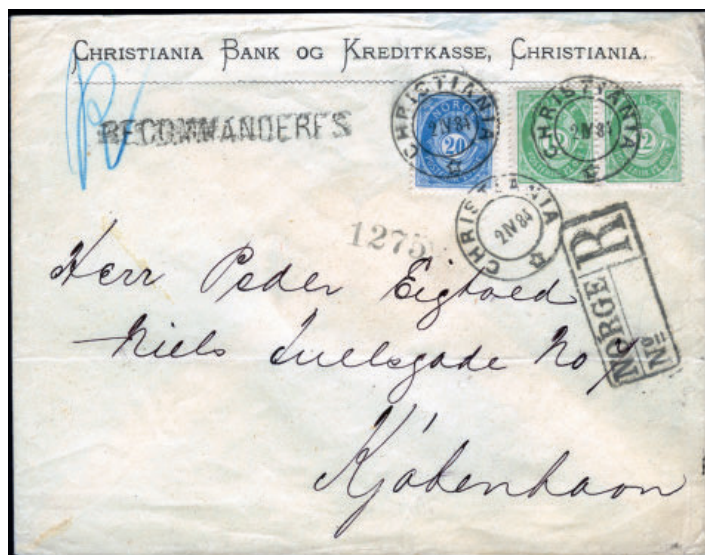 CHRISTIANIA BANK OG KREDITKASSE, CHRISTIANIA.
R
RECOMMANDERES
NORGE
20
CHRISTIANIA
2 IV 84
CHRISTIANIA
2 IV 84
2
CHRISTIANIA
2 IV 84
1275
NORGE R
No
Herr Peder Eigtved
Niels Juellsgade No 7
Kjøbenhavn